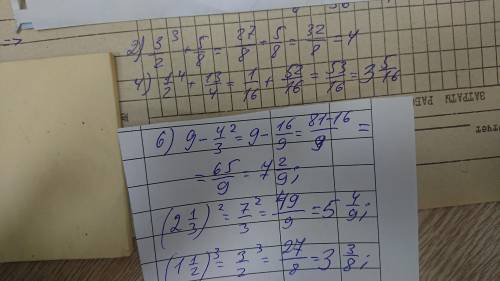 2) 3/2 ³ + 5/8 = 27/8 + 5/8 = 32/8 = 4
4) 1/2 ⁴ + 13/4 = 1/16 + 52/16 = 53/16 = 3 5/16
6) 9 - 4/3 ² = 9 - 16/9 = 81-16/9 =
= 65/9 = 7 2/9;
(2 1/3)² = 7/3 ² = 49/9 = 5 4/9;
(1 1/2)³ = 3/2 ³ = 27/8 = 3 3/8;
ЗАТРАТЫ